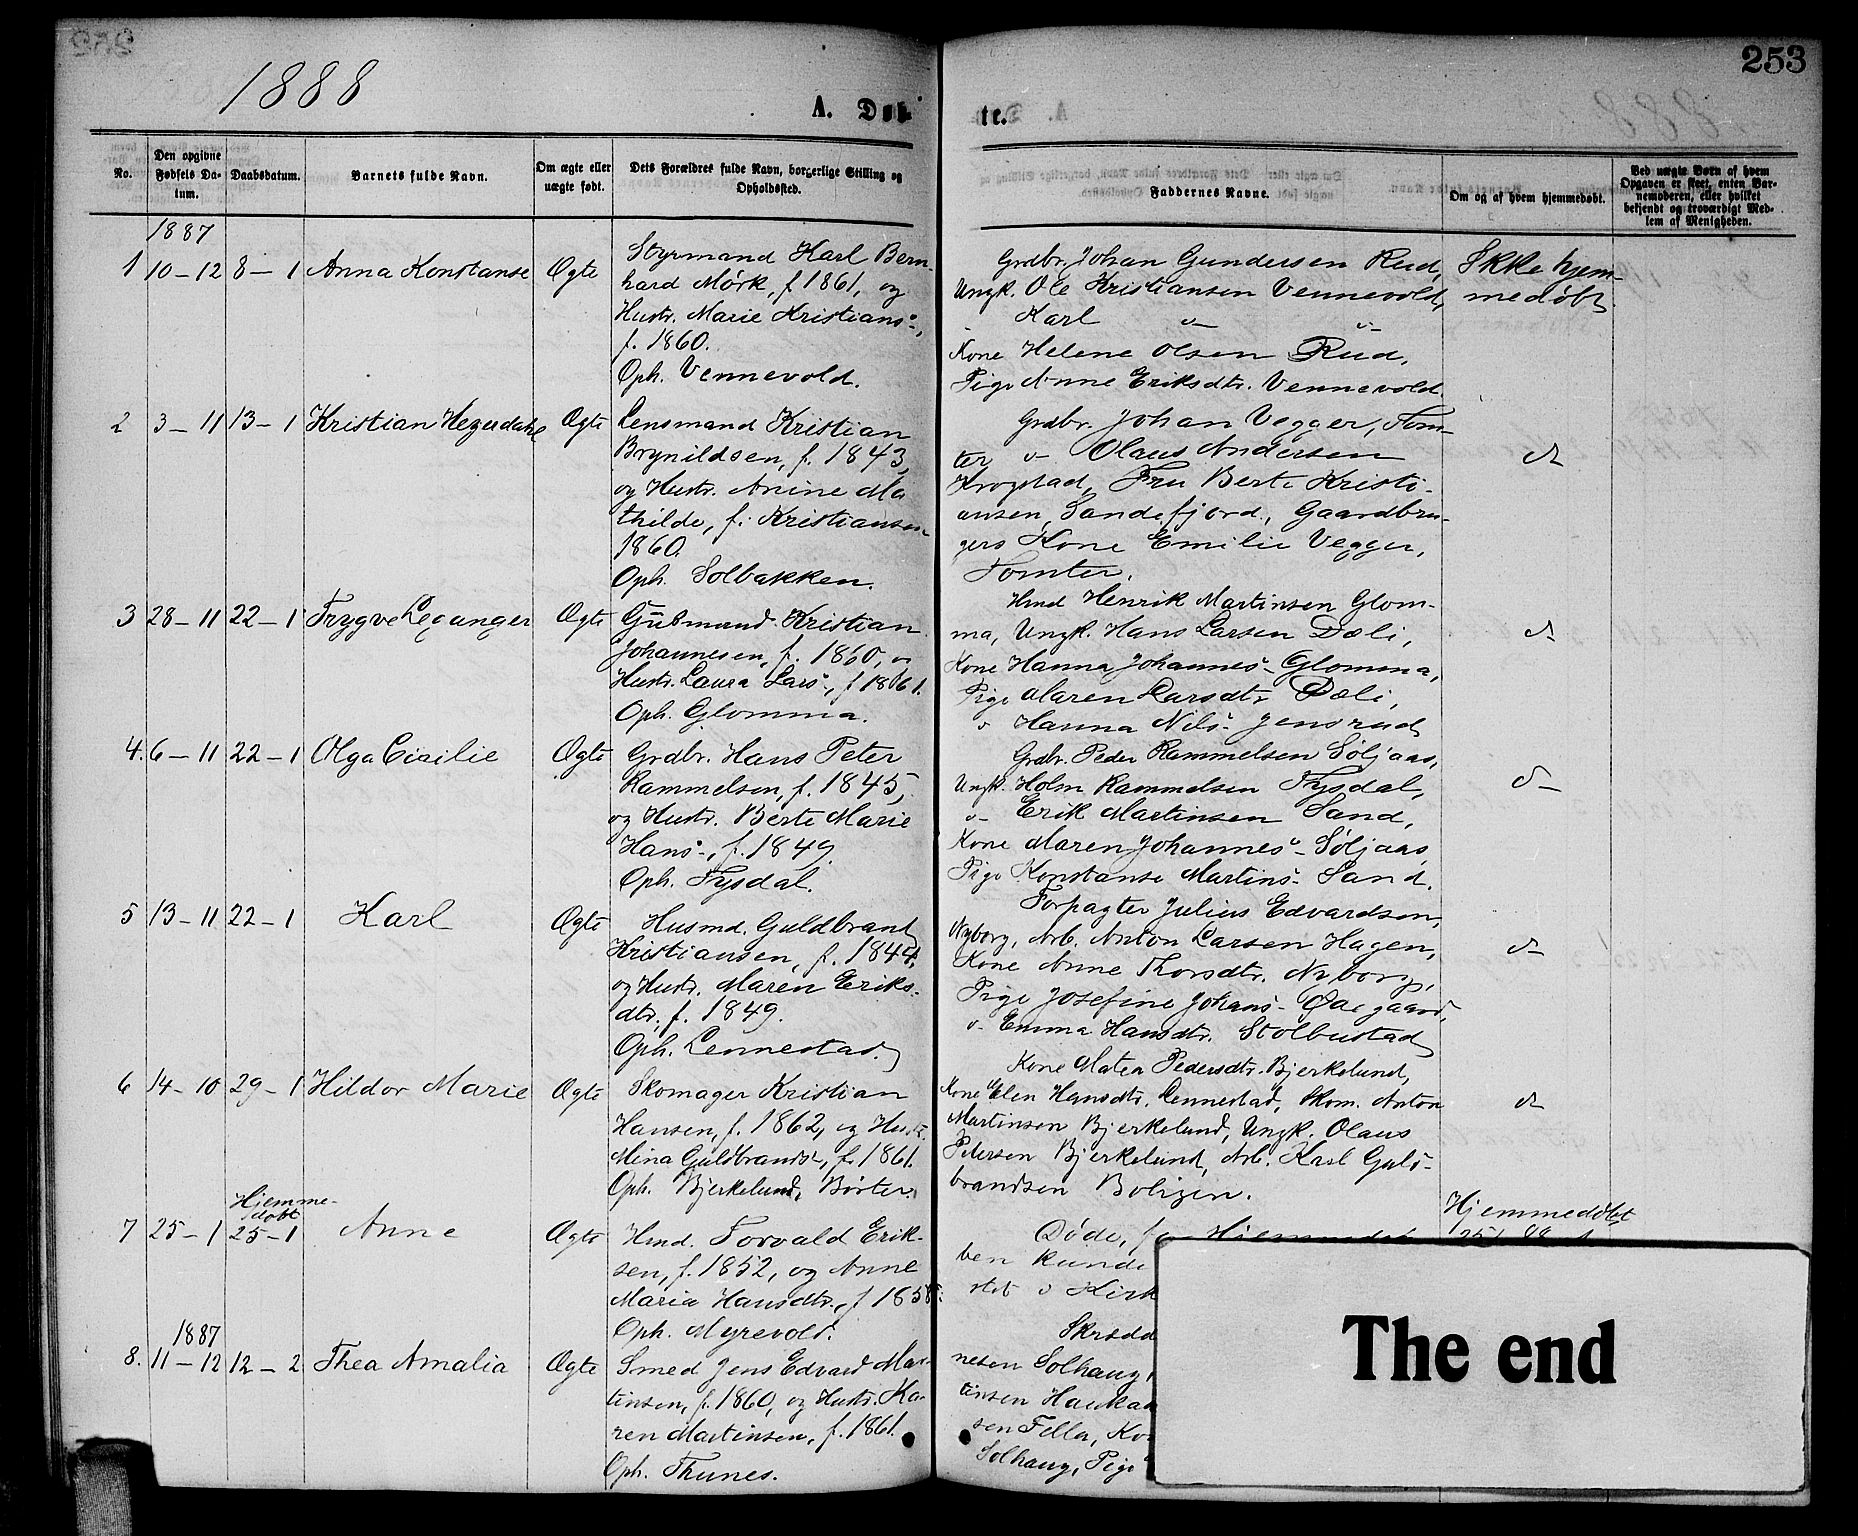 1888
253
A. Døb
te.
No.
Den opgivne Fødsels Datum.
Daabsdatum.
Barnets fulde Navn.
Om ægte eller uægte født.
Dets Forældres fulde Navn, borgerlige Stilling og Opholdssted.
Faddernes Navne.
Om og af hvem hjemmedøbt.
Ved uægte Børn af hvem Opgaven er skeet, enten Barnemoderen, eller hvilket bekjendt og troværdigt Medlem af Menigheden.
1887
1 10-12 8-1 Anna Konstanse Ægte
Styrmand Karl Bern-
hard Mørk, f. 1861, og
Hustr. Marie Kristians-,
f. 1860.
Oph. Vennevold.
Grdbr. Johan Gundersen Rud,
Ungk. Ole Kristiansen Vennevold,
Karl
Kone Helene Olsen Rud,
Pige Anne Eriksdtr. Vennevold.
Ikke hjem-
medøbt
2 3-11 13-1 Kristian Ægte
Lensmand Kristian
Brynildsen, f. 1843,
og Hustr. Anine Ma
thilde, f. Kristiansen
1860.
Oph. Solbakken.
Grdbr. Johan Vegger, Tom-
ter Olaus Andersen
Krogstad, Fru Berte Kristi-
ansen, Sandefjord, Gaardbru-
gers Kone Emilie Vegger,
Tomter.
3 28-11 22-1 Trygve Leganger Ægte
Kristian
Johannesen, f. 1860, og
Hustr. Laura Lars-, f. 1861.
Oph. Glomma.
Hmd Henrik Martinsen Glom-
ma, Ungk. Hans Larsen Dæli,
Kone Hanna Johannes- Glomma,
Pige Maren Larsdtr. Dæli,
Hanna Nils- Jensrud
4. 6-11 22-1 Olga Cicilie Ægte
Grdbr. Hans Peter
Rammelsen, f. 1845,
og Hustr. Berte Marie
Hans-, f. 1849.
Oph. Tysdal.
Grdbr. Peder Rammelsen Søljaas,
Ungk. Holm Rammelsen Tysdal,
Erik Martinsen Sand,
Kone Maren Johannes- Søljaas,
Pige Konstanse Martins- Sand.
5 13-11 22-1 Karl Ægte
Husmd. Guldbrand
Kristiansen, f. 1844,
og Hustr. Maren Eriks-
dtr, f. 1849.
Oph. Lennestad
Forpagter Julius Edvardsen,
Nyborg, Arb. Anton Larsen Hagen,
Kone Anne Thorsdtr. Nyborg,
Pige Josefine Johans- Ødegaard,
Emma Hansdtr. Stolbustad
6 14-10 29-1 Hildor Marie Ægte
Skomager Kristian
Hansen, f. 1862, og Hustr.
Mina Guldbrands-, f. 1861.
Oph. Bjerkelund, Børter.
Kone Matea Pedersdtr. Bjerkelund,
Kone Elen Hansdtr. Lennestad, Skom. Anton
Martinsen Bjerkelund, Ungk. Olaus
Petersen Bjerkelund, Arb. Karl Gulds-
brandsen Boligen.
Hjemme-
døbt
7 25-1 25-1 Anne Ægte
Hmd. Torvald Erik-
sen, f. 1852, og Anne
Maria Hansdtr., f. 1858.
Oph. Myrevold.
Døde, før Hjemmedaa
ben kunde
Kirk
Hjemmedøbt
1887
8. 11-12 12-2 Thea Amalia Ægte
Smed Jens Edvard Mar-
tinsen, f. 1860, og Hustr. Ka-
ren Martinsen, f. 1861.
Oph. Thunes.
Skrædd
nesen Solhaug,
tinsen Haukaa
sen Fella, Ko
Solhaug, Pige
The end